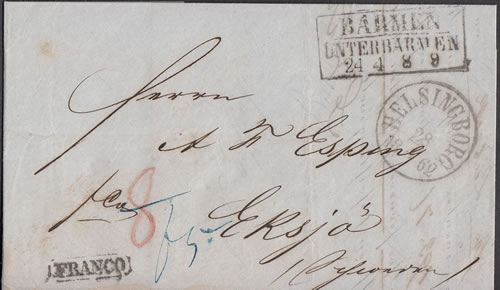 BARMEN
UNTERBARMEN
24 4 8 9
HELSINGBORG
28
62
Herrn
A F Esping
fco 8
Eksjö
(Schweden)
FRANCO